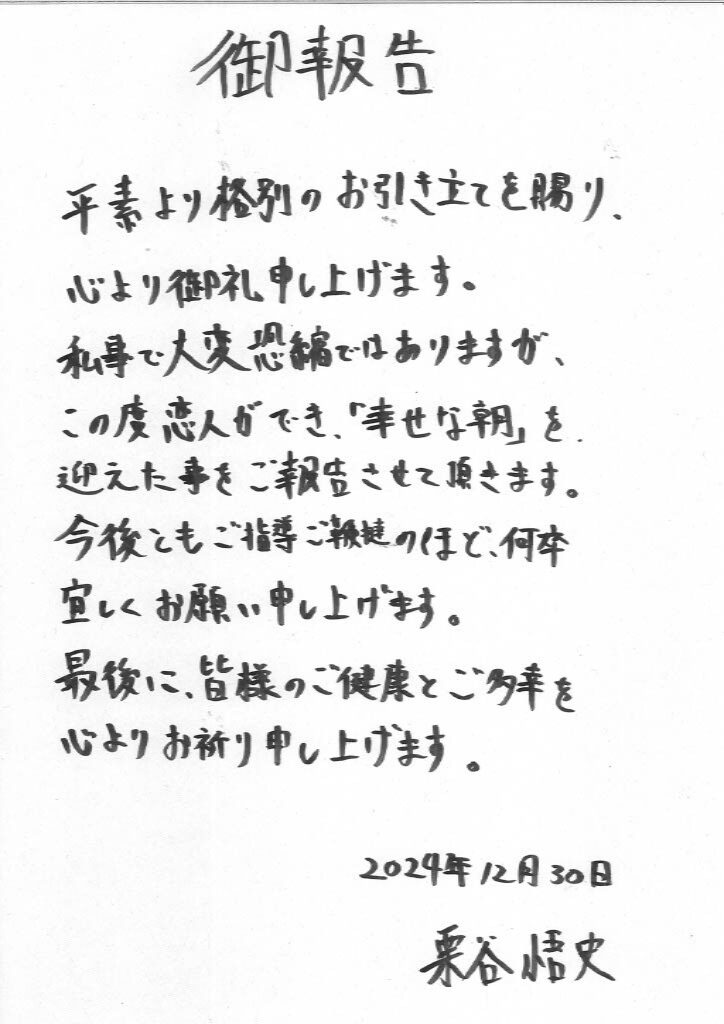 御報告
平素より格別のお引き立てを賜り、
心より御礼申し上げます。
私事で大変恐縮ではありますが、
この度恋人ができ、「幸せな朝」を
迎えた事をご報告させて頂きます。
今後ともご指導ご鞭撻のほど、何卒
宜しくお願い申し上げます。
最後に、皆様のご健康とご多幸を
心よりお祈り申し上げます。
2024年12月30日
栗谷悟史